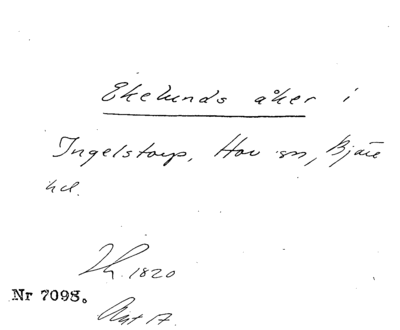 Ekelunds åker i
Ingelstorp, Hov sn, Bjäre
hd.
Lh. 1820
Nr 7098.
Akt 17.